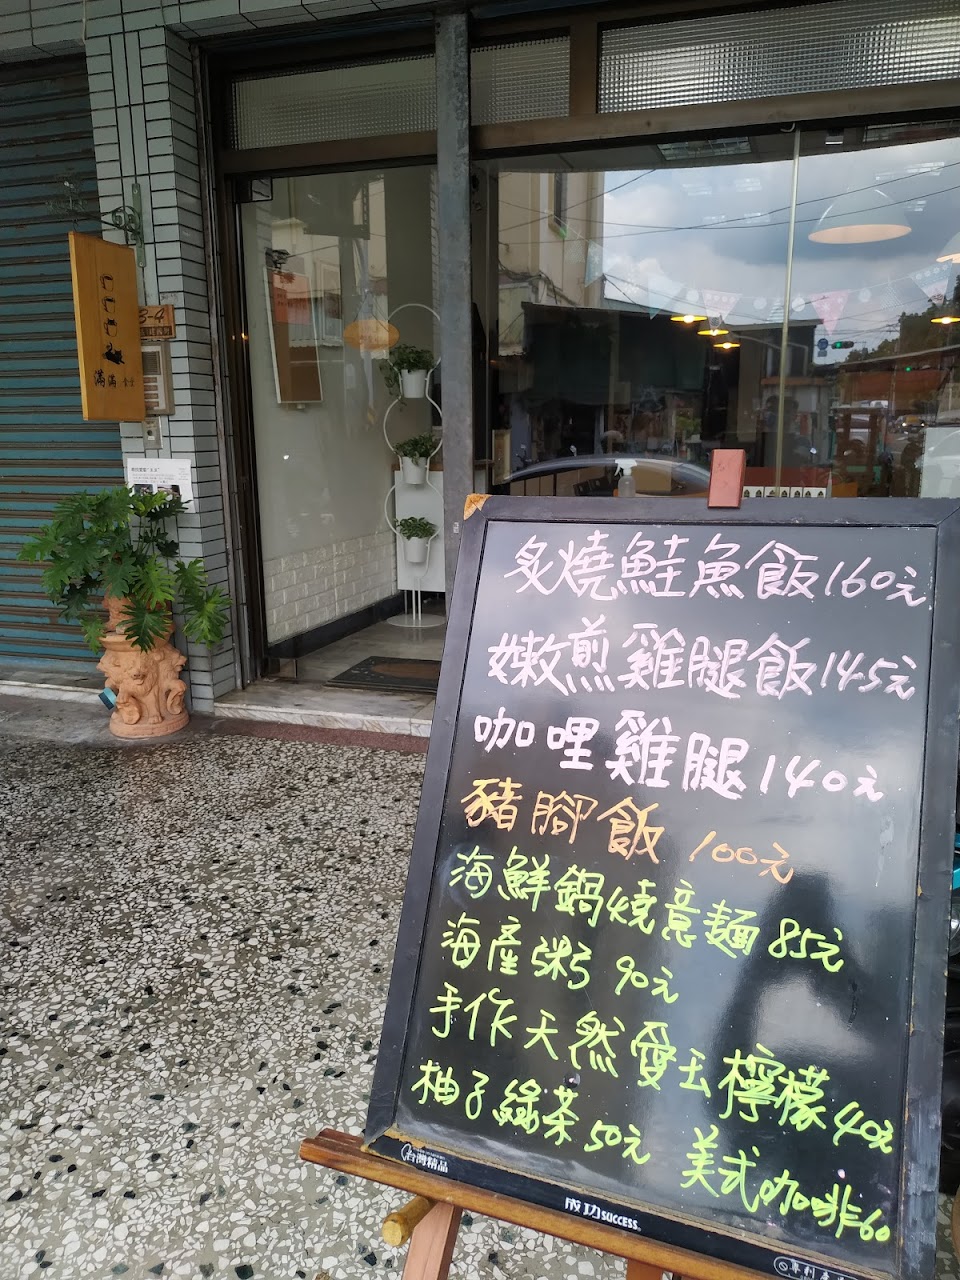 滿滿
3-4
炙燒鮭魚飯160元
嫩煎雞腿飯145元
咖哩雞腿140元
豬腳飯 100元
海鮮鍋燒意麵85元
海產粥 90元
手作天然愛玉檸檬40元
柚子綠茶50元 美式咖啡60
台灣精品
成功SUCCESS
專利